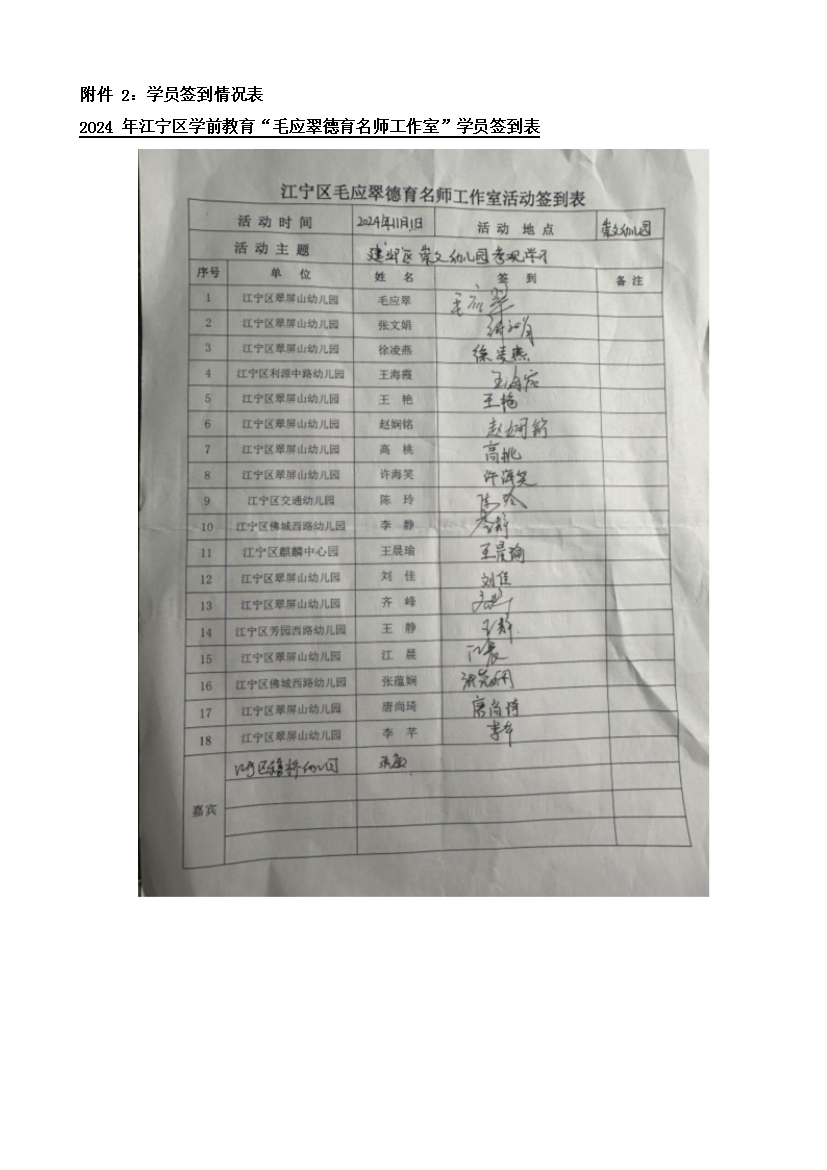 附件 2：学员签到情况表
2024 年江宁区学前教育“毛应翠德育名师工作室”学员签到表
江宁区毛应翠德育名师工作室活动签到表
活动时间 2024年11月1日 活动地点 崇文幼儿园
活动主题 建邺区崇文幼儿园参观学习
序号 单位 姓名 签到 备注
1 江宁区翠屏山幼儿园 毛应翠 毛应翠
2 江宁区翠屏山幼儿园 张文娟
3 江宁区翠屏山幼儿园 徐凌燕 徐凌燕
4 江宁区利源中路幼儿园 王海霞 王海霞
5 江宁区翠屏山幼儿园 王艳 王艳
6 江宁区翠屏山幼儿园 赵娴铭 赵娴铭
7 江宁区翠屏山幼儿园 高桃 高桃
8 江宁区翠屏山幼儿园 许海笑 许海笑
9 江宁区交通幼儿园 陈玲 陈玲
10 江宁区佛城西路幼儿园 李静 李静
11 江宁区麒麟中心园 王晨瑜 王晨瑜
12 江宁区翠屏山幼儿园 刘佳 刘佳
13 江宁区翠屏山幼儿园 齐峰
14 江宁区芳园西路幼儿园 王静 王静
15 江宁区翠屏山幼儿园 江晨 江晨
16 江宁区佛城西路幼儿园 张蕴娴
17 江宁区翠屏山幼儿园 唐尚琦 唐尚琦
18 江宁区翠屏山幼儿园 李芊 李芊
嘉宾 江宁区 幼儿园